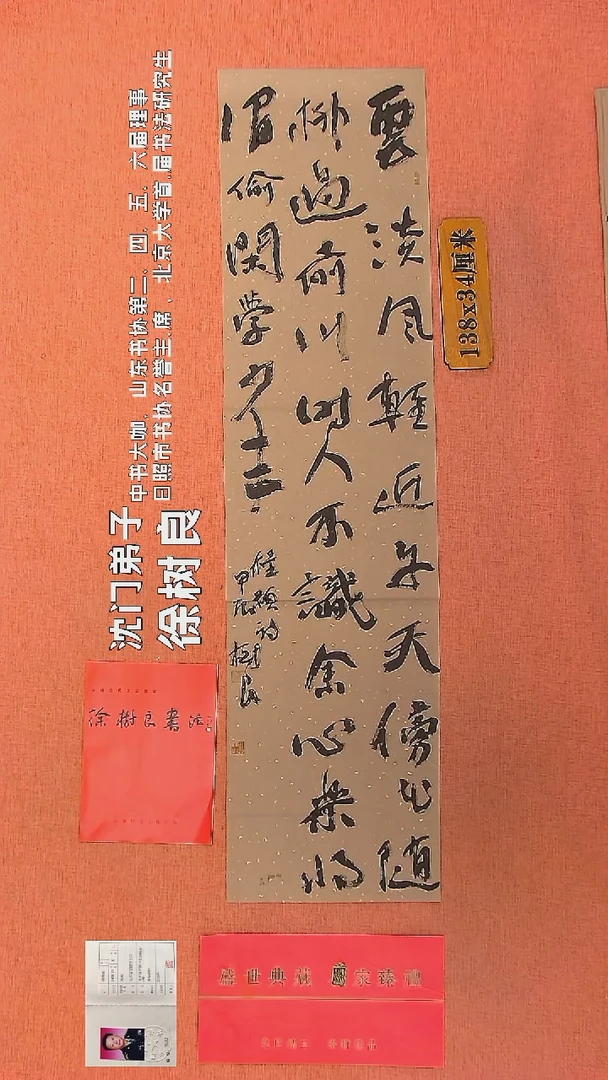 沈门弟子
徐树良
中书大咖，山东书协第二、四、五、六届理事
日照市书协名誉主席、北京大学首届书法研究生
138x34厘米
雲淡風輕近午天傍花隨
柳過前川時人不識余心樂將
謂偷閑學少年
程顥詩
甲辰 樹良
徐樹良書法
盛世典藏